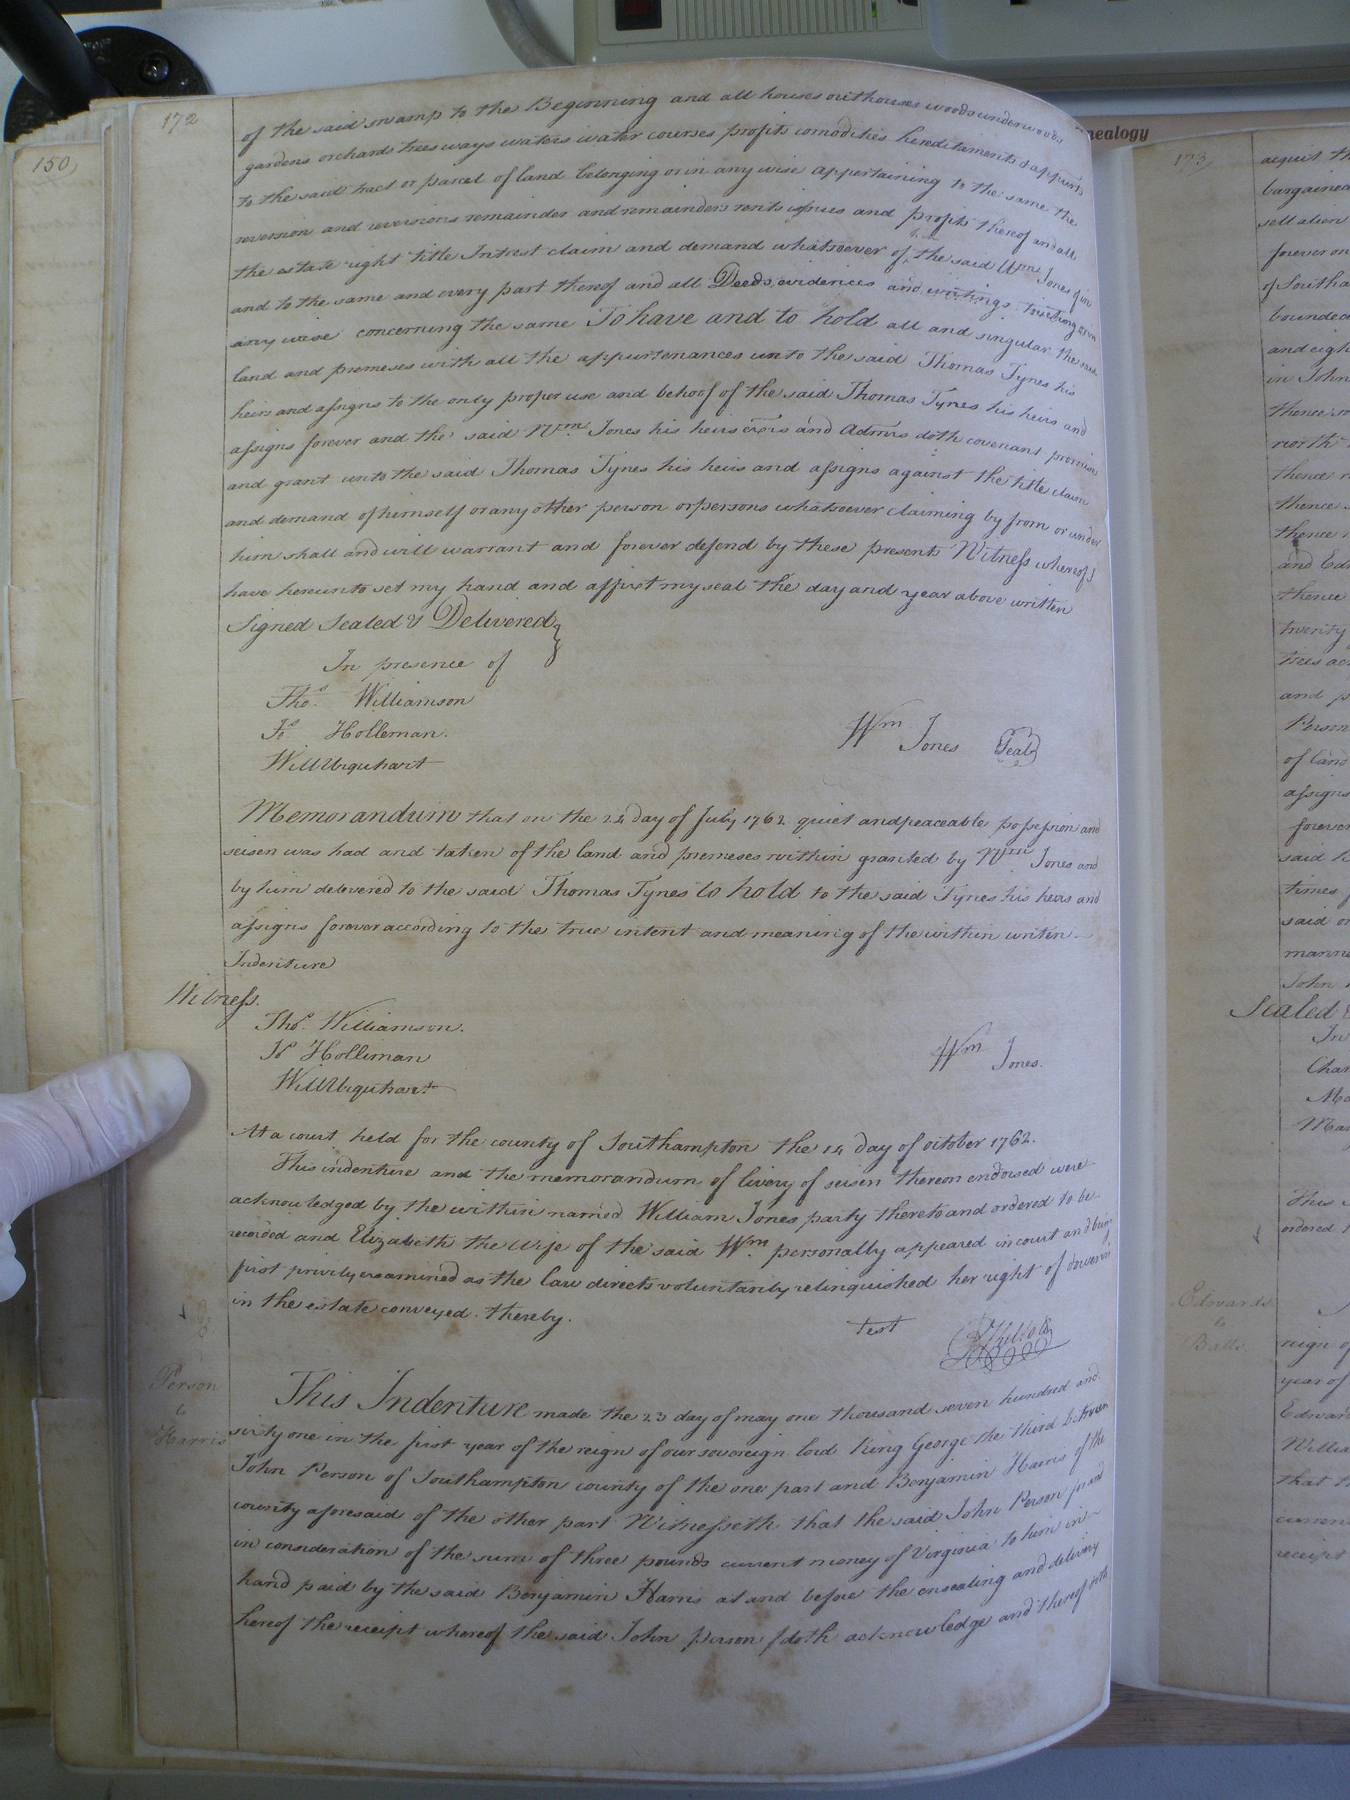 172
of the said swamp to the Beginning and all houses outhouses woods underwoods
gardens orchards trees ways waters water courses profits comodities hereditaments & appurts
to the said tract or parcel of land belonging or in any wise appertaining to the same the
reversion and reversions remainder and remainders rents issues and profits thereof and all
the estate right title Intrest claim and demand whatsoever of him the said Wm Jones of in
and to the same and every part thereof and all Deeds evidences and writings touching or in
any wise concerning the same To have and to hold all and singular the said
land and premeses with all the appurtenances unto the said Thomas Tynes his
heirs and assigns to the only proper use and behoof of the said Thomas Tynes his heirs and
assigns forever and the said Wm Jones his heirs exors and Admrs doth covenant promise
and grant unto the said Thomas Tynes his heirs and assigns against the title claim
and demand of himself or any other person or persons whatsoever claiming by from or under
him shall and will warrant and forever defend by these presents Witness whereof I
have hereunto set my hand and affixt my seal the day and year above written
Signed Sealed & Delivered }
In presence of
Thos. Williamson
Jo Holleman.
Will Urquhart
Wm Jones Seal
Memorandum that on the 24 day of July 1762 quiet and peaceable possession and
seisen was had and taken of the land and premeses within granted by Wm Jones and
by him delevered to the said Thomas Tynes to hold to the said Tynes his heirs and
assigns forever according to the true intent and meaning of the within writen
Indenture
Witness.
Thos. Williamson.
Jo Holliman
Will Urquhart
Wm Jones.
At a court held for the county of Southampton the 14 day of october 1762.
This indenture and the memorandum of livery of seisen thereon endorsed were
acknowledged by the within named William Jones party thereto and ordered to be
recorded and Elizabeth the Wife of the said Wm. personally appeared in court and being
first privily examined as the Law directs voluntarily relinquished her right of dower
in the estate conveyed thereby.
Test
Person
to
Harris
This Indenture made the 23 day of may one thousand seven hundred and
sixty one in the first year of the reign of our sovereign lord King George the third between
John Person of Southampton county of the one part and Benjamin Harris of the
county aforesaid of the other part Witnesseth that the said John Person for and
in consideration of the sum of three pounds current money of Virginia to him in
hand paid by the said Benjamin Harris at and before the ensealing and delivery
hereof the receipt whereof the said John person doth acknowledge and thereof doth
150
nealogy
173
acquit th
bargained
sell alien
forever on
of Southa
bounded
and eigh
in John
thence
north
thence
thence
thence
and Ed
thence
twenty
trees
and p
Person
of land
assigns
forever
said B
times
said
manne
John
Sealed &
In
Char
Ma
Ma
This
ordered
Edwards
to
Balls
reign of
year of
Edwar
Willia
that
curren
receipt